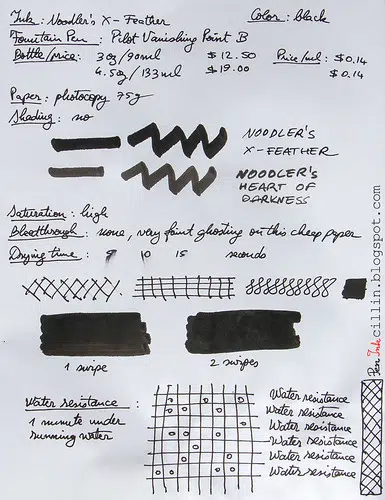 Ink: Noodler's X-Feather Color: black
Fountain Pen: Pilot Vanishing Point B
Bottle/price: 3oz/90ml $12.50 Price/ml: $0.14
4.5oz/133ml $19.00 $0.14
Paper: photocopy 75g
Shading: no
NOODLER'S
X-FEATHER
NOODLER'S
HEART OF
DARKNESS
Saturation: high
Bleedthrough: none, very faint ghosting on this cheap paper
Drying time: 5 10 15 seconds
1 swipe 2 swipes
Water resistance:
1 minute under
running water
Water resistance
Water resistance
Water resistance
Water resistance
Water resistance
Water resistance
Pen Ink cillin.blogspot.com